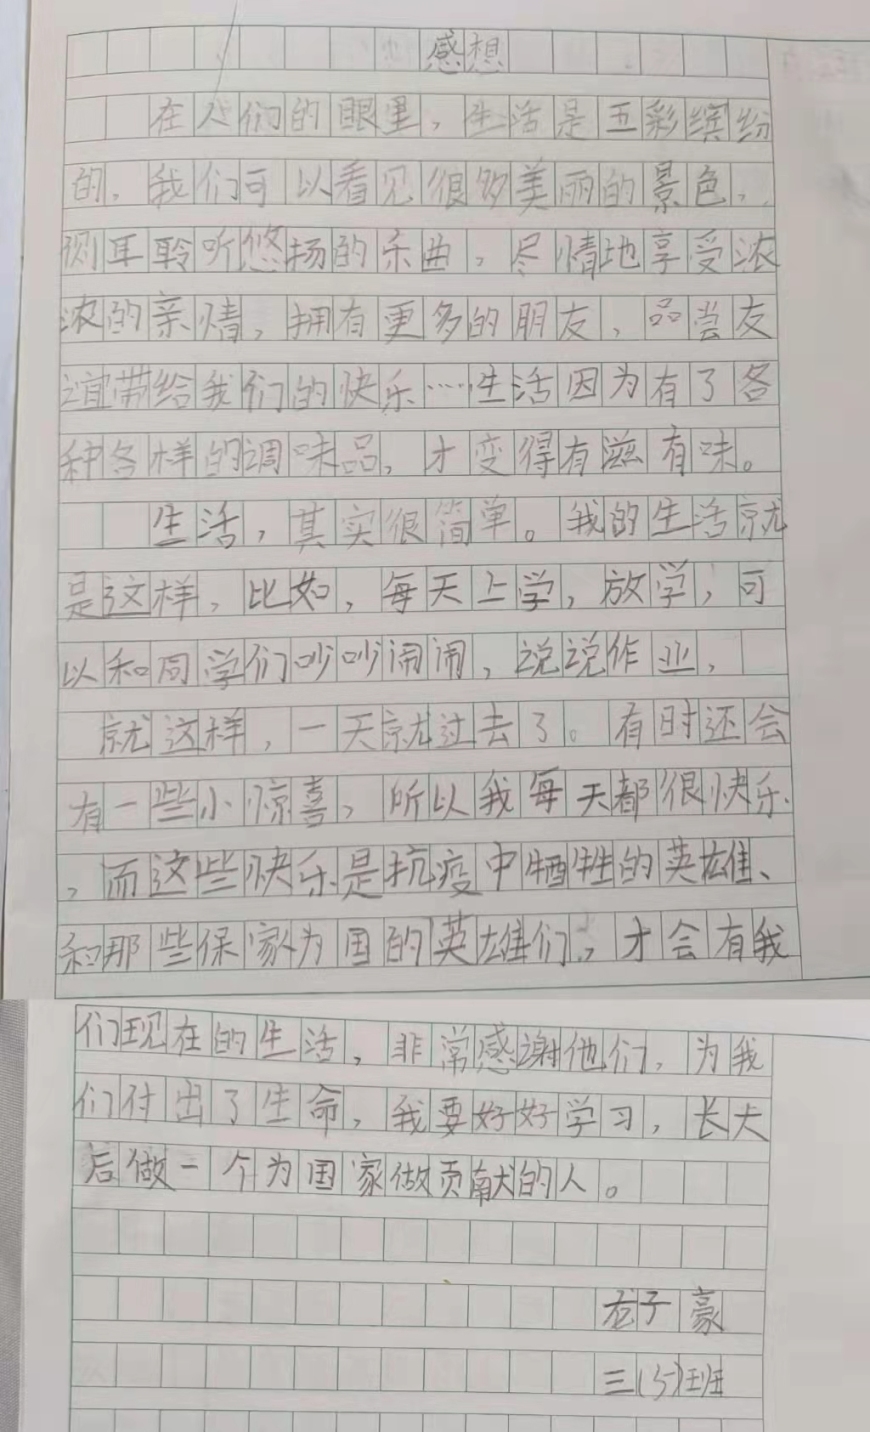 感想
在人们的眼里，生活是五彩缤纷
的，我们可以看见很多美丽的景色，
侧耳聆听悠扬的乐曲，尽情地享受浓
浓的亲情，拥有更多的朋友，品尝友
谊带给我们的快乐……生活因为有了各
种各样的调味品，才变得有滋有味。
生活，其实很简单。我的生活就
是这样，比如，每天上学，放学，可
以和同学们吵吵闹闹，说说作业，
就这样，一天就过去了。有时还会
有一些小惊喜，所以我每天都很快乐
，而这些快乐是抗疫中牺牲的英雄、
和那些保家为国的英雄们，才会有我
们现在的生活，非常感谢他们，为我
们付出了生命，我要好好学习，长大
后做一个为国家做贡献的人。
龙子豪
三(5)班